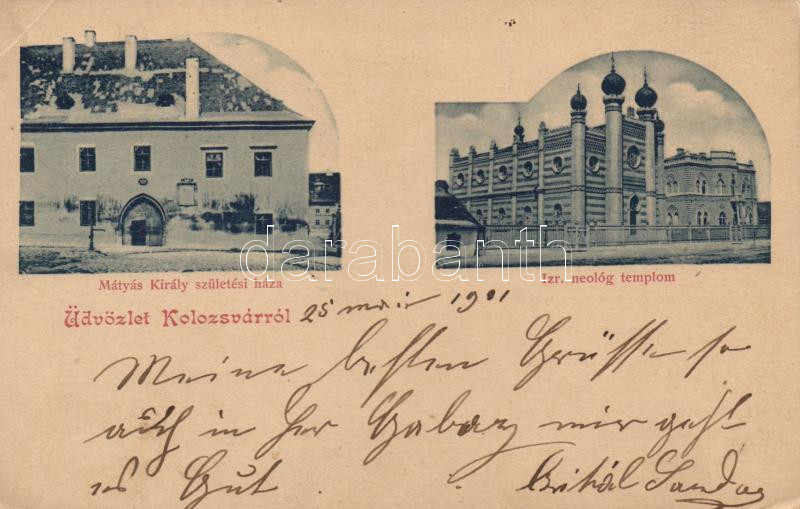 Mátyás Király születési háza
Izr. neológ templom
Üdvözlet Kolozsvárról 25 mai 1901
darabanth
Meine besten Grüsse so
auch in der mir geht
es Gut.